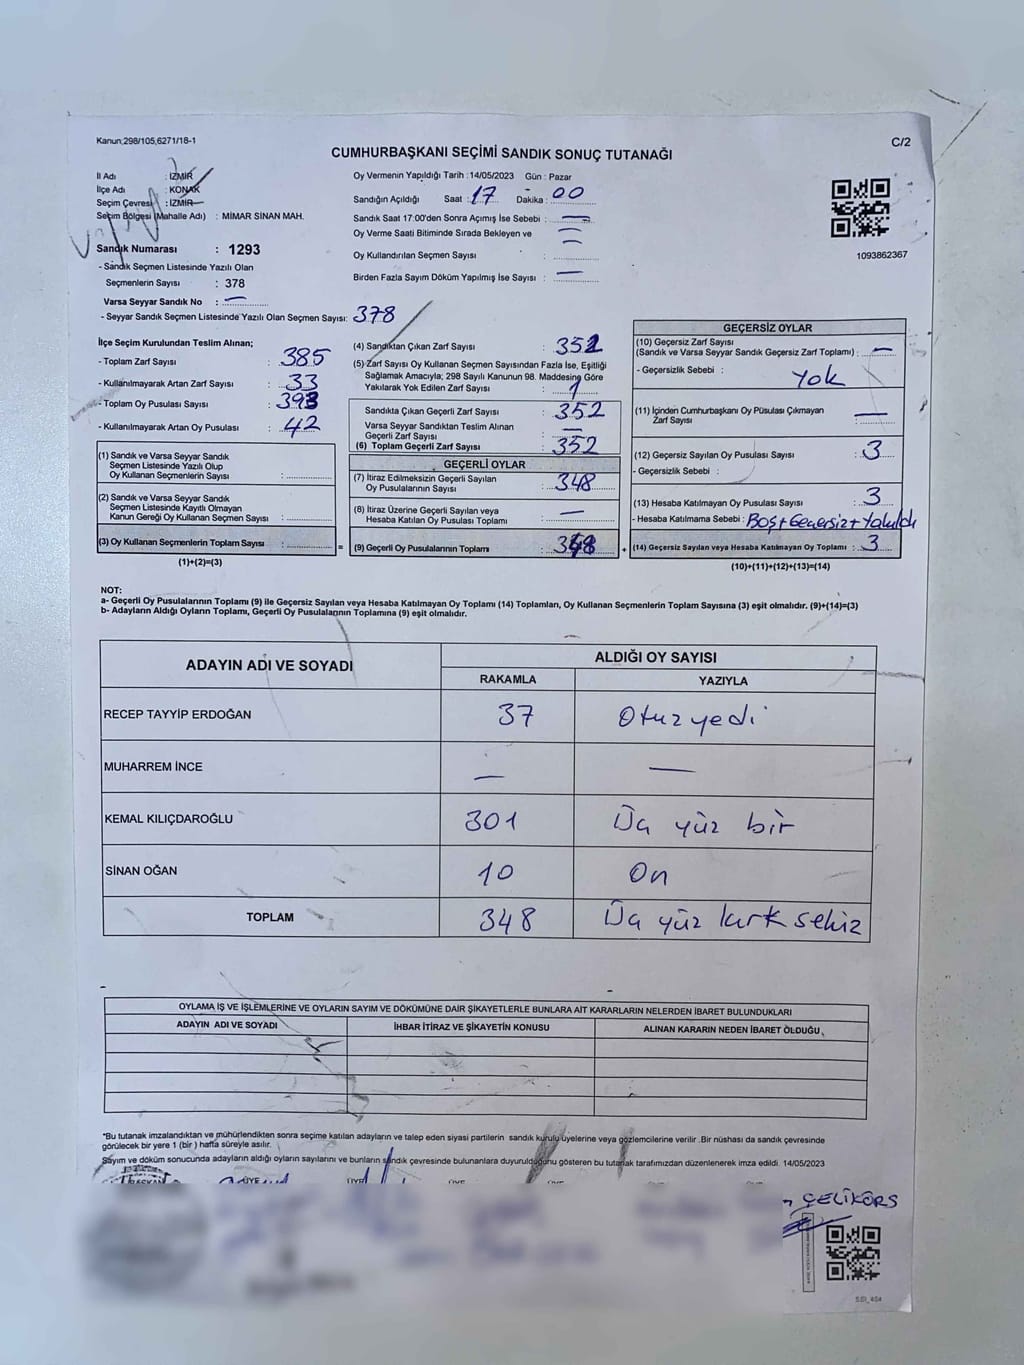 Kanun;298/105,6271/18-1
C/2
CUMHURBAŞKANI SEÇİMİ SANDIK SONUÇ TUTANAĞI
İl Adı : İZMİR
İlçe Adı : KONAK
Seçim Çevresi : İZMİR
Seçim Bölgesi (Mahalle Adı) : MİMAR SİNAN MAH.
Sandık Numarası : 1293
- Sandık Seçmen Listesinde Yazılı Olan
Seçmenlerin Sayısı : 378
Varsa Seyyar Sandık No : —
- Seyyar Sandık Seçmen Listesinde Yazılı Olan Seçmen Sayısı: 378
Oy Vermenin Yapıldığı Tarih :14/05/2023 Gün : Pazar
Sandığın Açıldığı Saat : 17 Dakika : 00
Sandık Saat 17:00'den Sonra Açımış İse Sebebi : —
Oy Verme Saati Bitiminde Sırada Bekleyen ve —
Oy Kullandırılan Seçmen Sayısı :
Birden Fazla Sayım Döküm Yapılmış İse Sayısı : —
1093862367
İlçe Seçim Kurulundan Teslim Alınan;
- Toplam Zarf Sayısı : 385
- Kullanılmayarak Artan Zarf Sayısı : 33
- Toplam Oy Pusulası Sayısı : 393
- Kullanılmayarak Artan Oy Pusulası : 42
(1) Sandık ve Varsa Seyyar Sandık
Seçmen Listesinde Yazılı Olup
Oy Kullanan Seçmenlerin Sayısı :
(2) Sandık ve Varsa Seyyar Sandık
Seçmen Listesinde Kayıtlı Olmayan
Kanun Gereği Oy Kullanan Seçmen Sayısı :
(3) Oy Kullanan Seçmenlerin Toplam Sayısı : =
(1)+(2)=(3)
(4) Sandıktan Çıkan Zarf Sayısı : 352
(5) Zarf Sayısı Oy Kullanan Seçmen Sayısından Fazla İse, Eşitliği
Sağlamak Amacıyla; 298 Sayılı Kanunun 98. Maddesine Göre
Yakılarak Yok Edilen Zarf Sayısı : 1
Sandıkta Çıkan Geçerli Zarf Sayısı : 352
Varsa Seyyar Sandıktan Teslim Alınan
Geçerli Zarf Sayısı : —
(6) Toplam Geçerli Zarf Sayısı : 352
GEÇERLİ OYLAR
(7) İtiraz Edilmeksizin Geçerli Sayılan
Oy Pusulalarının Sayısı : 348
(8) İtiraz Üzerine Geçerli Sayılan veya
Hesaba Katılan Oy Pusulası Toplamı : —
(9) Geçerli Oy Pusulalarının Toplamı : 348 +
GEÇERSİZ OYLAR
(10) Geçersiz Zarf Sayısı
(Sandık ve Varsa Seyyar Sandık Geçersiz Zarf Toplamı) : —
- Geçersizlik Sebebi : Yok
(11) İçinden Cumhurbaşkanı Oy Püsulası Çıkmayan
Zarf Sayısı : —
(12) Geçersiz Sayılan Oy Pusulası Sayısı : 3
- Geçersizlik Sebebi :
(13) Hesaba Katılmayan Oy Pusulası Sayısı : 3
- Hesaba Katılmama Sebebi : Boş+Geçersiz+Yakıldı
(14) Geçersiz Sayılan veya Hesaba Katılmayan Oy Toplamı : 3
(10)+(11)+(12)+(13)=(14)
NOT:
a- Geçerli Oy Pusulalarının Toplamı (9) ile Geçersiz Sayılan veya Hesaba Katılmayan Oy Toplamı (14) Toplamları, Oy Kullanan Seçmenlerin Toplam Sayısına (3) eşit olmalıdır. (9)+(14)=(3)
b- Adayların Aldığı Oyların Toplamı, Geçerli Oy Pusulalarının Toplamına (9) eşit olmalıdır.
ADAYIN ADI VE SOYADI
ALDIĞI OY SAYISI
RAKAMLA YAZIYLA
RECEP TAYYİP ERDOĞAN 37 Otuzyedi
MUHARREM İNCE — —
KEMAL KILIÇDAROĞLU 301 Üç yüz bir
SİNAN OĞAN 10 On
TOPLAM 348 Üç yüz kırk sekiz
OYLAMA İŞ VE İŞLEMLERİNE VE OYLARIN SAYIM VE DÖKÜMÜNE DAİR ŞİKAYETLERLE BUNLARA AİT KARARLARIN NELERDEN İBARET BULUNDUKLARI
ADAYIN ADI VE SOYADI İHBAR İTİRAZ VE ŞİKAYETİN KONUSU ALINAN KARARIN NEDEN İBARET OLDUĞU
*Bu tutanak imzalandıktan ve mühürlendikten sonra seçime katılan adayların ve talep eden siyasi partilerin sandık kurulu üyelerine veya gözlemcilerine verilir .Bir nüshası da sandık çevresinde
görülecek bir yere 1 (bir ) hafta süreyle asılır.
Sayım ve döküm sonucunda adayların aldığı oyların sayılarını ve bunların sandık çevresinde bulunanlara duyurulduğunu gösteren bu tutanak tarafımızdan düzenlenerek imza edildi. 14/05/2023
BAŞKAN ÜYE ÜYE ÜYE ÜYE
ÇELİKÖRS